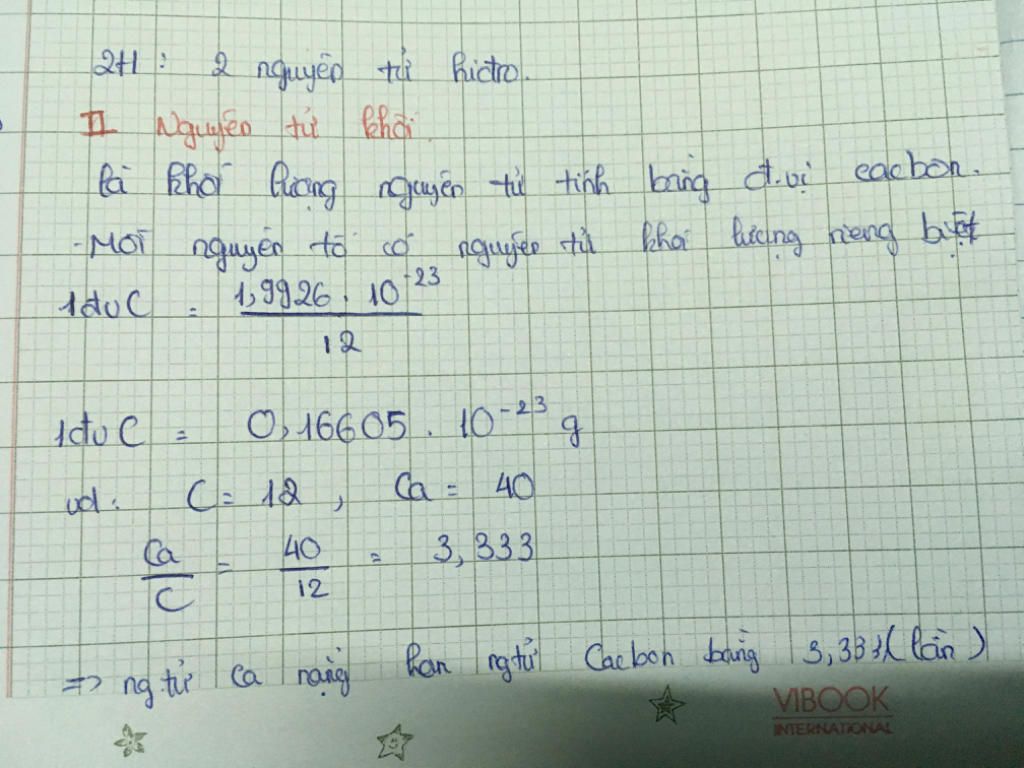 2H : 2 nguyên tử hiđro.
II Nguyên tử khối.
là khối lượng nguyên tử tính bằng đ.vị cacbon.
- Mỗi nguyên tố có nguyên tử khối lượng riêng biệt
1đvC = 1,9926 . 10⁻²³ / 12
1đvC = 0,16605 . 10⁻²³ g
vd : C = 12 , Ca = 40
Ca / C = 40 / 12 = 3,333
=> ng tử Ca nặng hơn ng tử Cacbon bằng 3,333 (lần)
VIBOOK
INTERNATIONAL